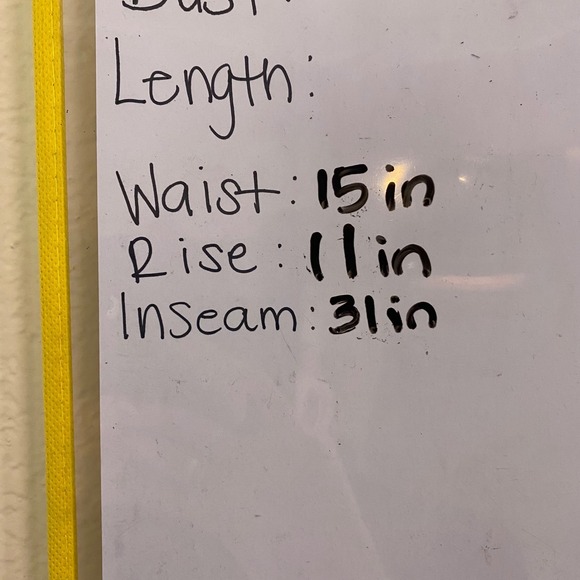 Bust:
Length:
Waist: 15 in
Rise: 11 in
Inseam: 31 in